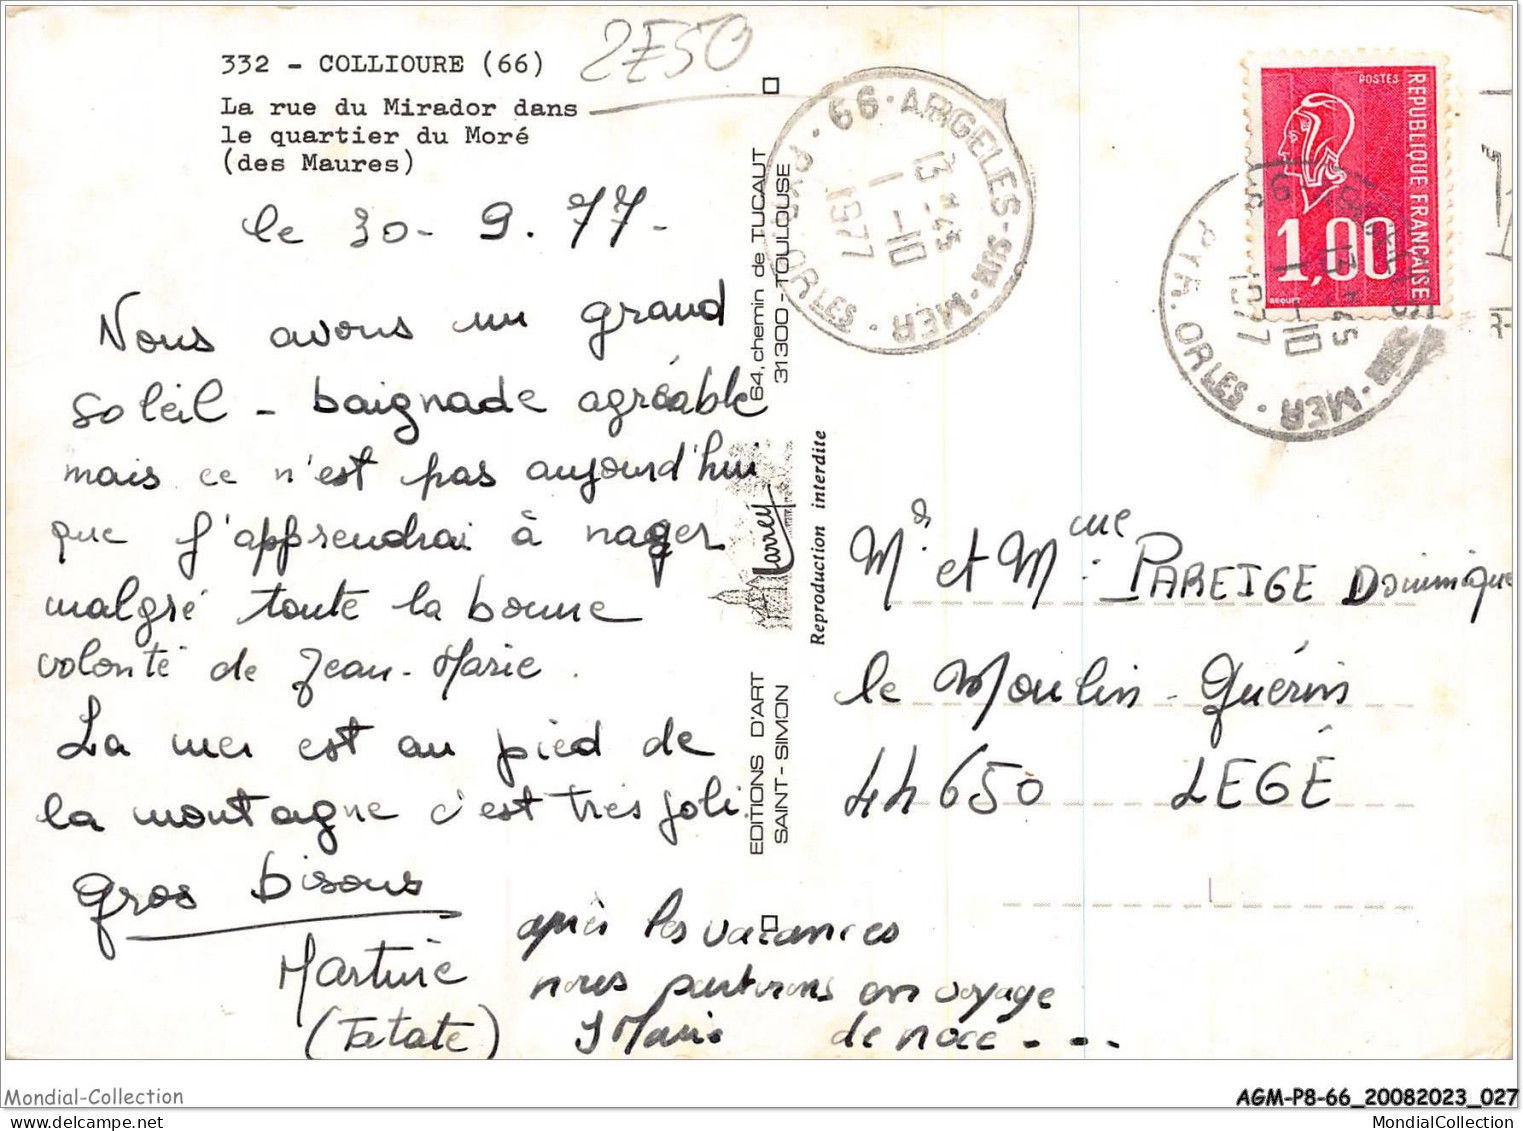 332 - COLLIOURE (66)
2E50
La rue du Mirador dans
le quartier du Moré
(des Maures)
le 30-9.77-
Nous avons un grand
soleil - baignade agréable
mais ce n'est pas aujourd'hui
que j'apprendrai à nager
malgré toute la bonne
volonté de Jean-Marie.
La mer est au pied de
la montagne c'est très joli.
gros bisous
Martine
(Tatate)
après les vacances
nous partirons en voyage
de noce - - -
J Marie
EDITIONS D'ART
SAINT-SIMON
Larrey
64, chemin de TUCAUT
31300 - TOULOUSE
Reproduction interdite
66 · ARGELES-SUR-MER · PYR. ORLES ·
13H45
1-10
1977
POSTES
REPUBLIQUE FRANÇAISE
1,00
BEQUET
66 ARGELES-SUR-MER · PYR. ORLES ·
13H45
1-10
1977
Mr. et Mme : PAREIGE Dominique
le Moulin - Guérin
44650 LEGÉ
Mondial-Collection
AGM-P8-66_20082023_027
MondialCollection.com